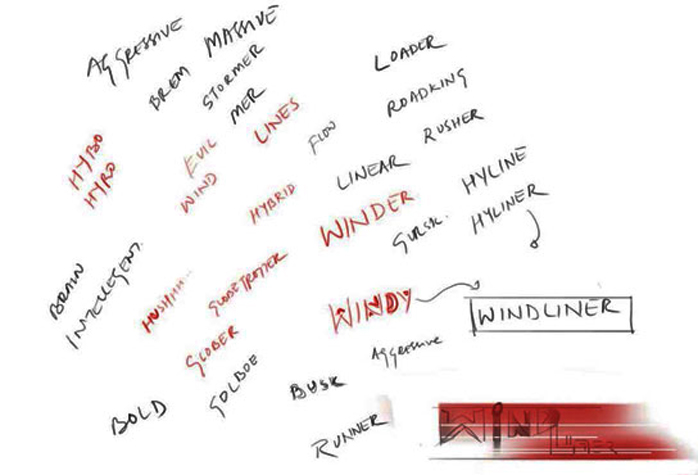 AGGRESSIVE
MASSIVE
BREM
STORMER
MER
LOADER
ROADKING
RUSHER
HYBO
HYRO
EVIL
WIND
LINES
FLOW
LINEAR
HYLINE
HYLINER
HYBRID
WINDER
GURSK.
BRAIN
INTELLEGENT.
HUSHHH...
GLOBETROTTER
GLOBER
GOLBOE
WINDY
WINDLINER
Aggressive
BUSK
BOLD
RUNNER
WIND
LINER